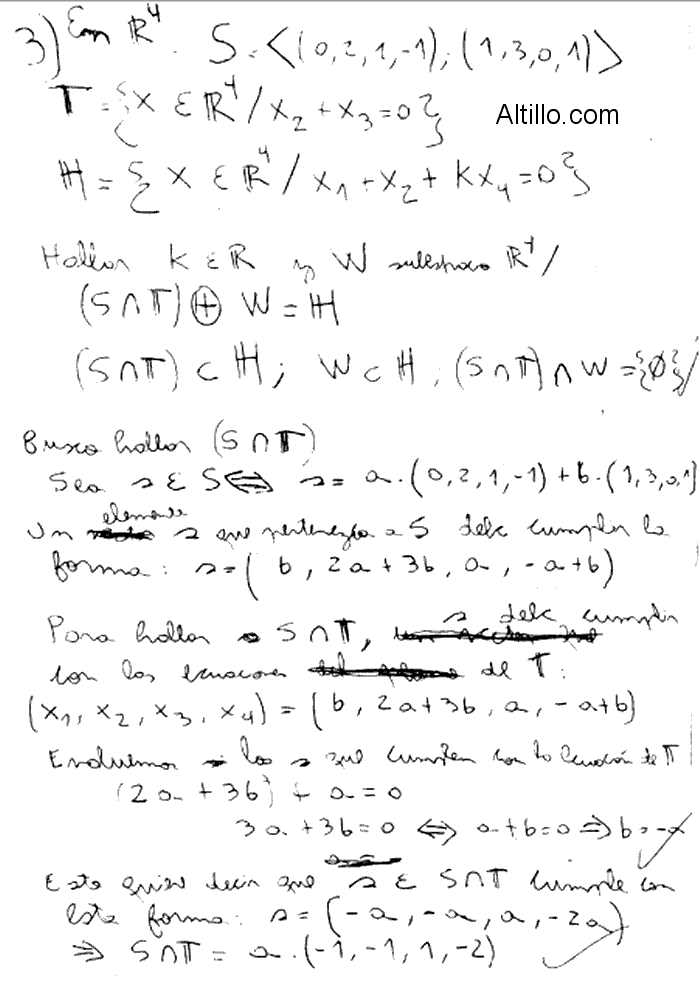 3) En ℝ⁴. S = <(0,2,1,-1); (1,3,0,1)>
T = {x ∈ ℝ⁴ / x₂ + x₃ = 0}
Altillo.com
H = {x ∈ ℝ⁴ / x₁ + x₂ + kx₄ = 0}
Hallar k ∈ ℝ y W subespacio ℝ⁴ /
(S ∩ T) ⊕ W = H
(S ∩ T) ⊂ H ; W ⊂ H ; (S ∩ T) ∩ W = {∅} /
Busco hallar (S ∩ T)
Sea s ∈ S ⟺ s = a·(0,2,1,-1) + b·(1,3,0,1)
Un elemento s que pertenezca a S debe cumplir la
forma: s = (b, 2a + 3b, a, -a+b)
Para hallar S ∩ T, s debe cumplir
con las ecuaciones de T:
(x₁, x₂, x₃, x₄) = (b, 2a+3b, a, -a+b)
los s que cumplen con la ecuación de T
(2a + 3b) + a = 0
3a + 3b = 0 ⟺ a+b=0 ⟹ b=-a
Esto quiere decir que s ∈ S∩T cumple con
esta forma: s = (-a, -a, a, -2a)
⟹ S∩T = a·(-1, -1, 1, -2)